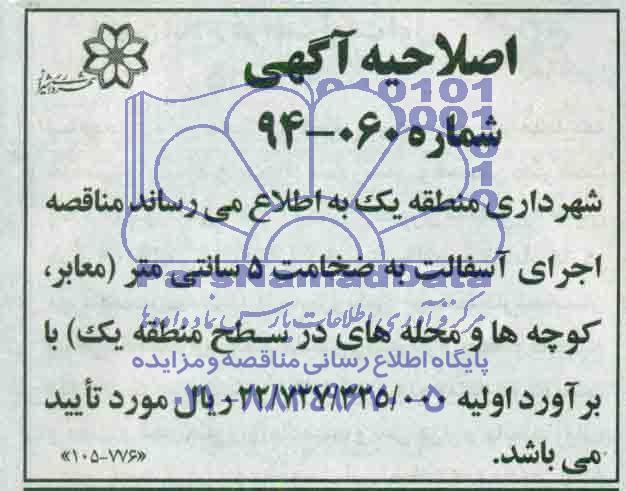 اصلاحیه آگهی
شماره ۰۶۰-۹۴
شهرداری منطقه یک به اطلاع می رساند مناقصه
اجرای آسفالت به ضخامت ۵ سانتی متر (معابر،
کوچه ها و محله های در سطح منطقه یک) با
برآورد اولیه ۲۲/۷۳۷/۴۲۵/۰۰۰ ریال مورد تأیید
می باشد.
«۱۰۵-۷۷۶»
ParsNamadData
مرکز فرآوری اطلاعات پارس نماد داده ها
پایگاه اطلاع رسانی مناقصه و مزایده